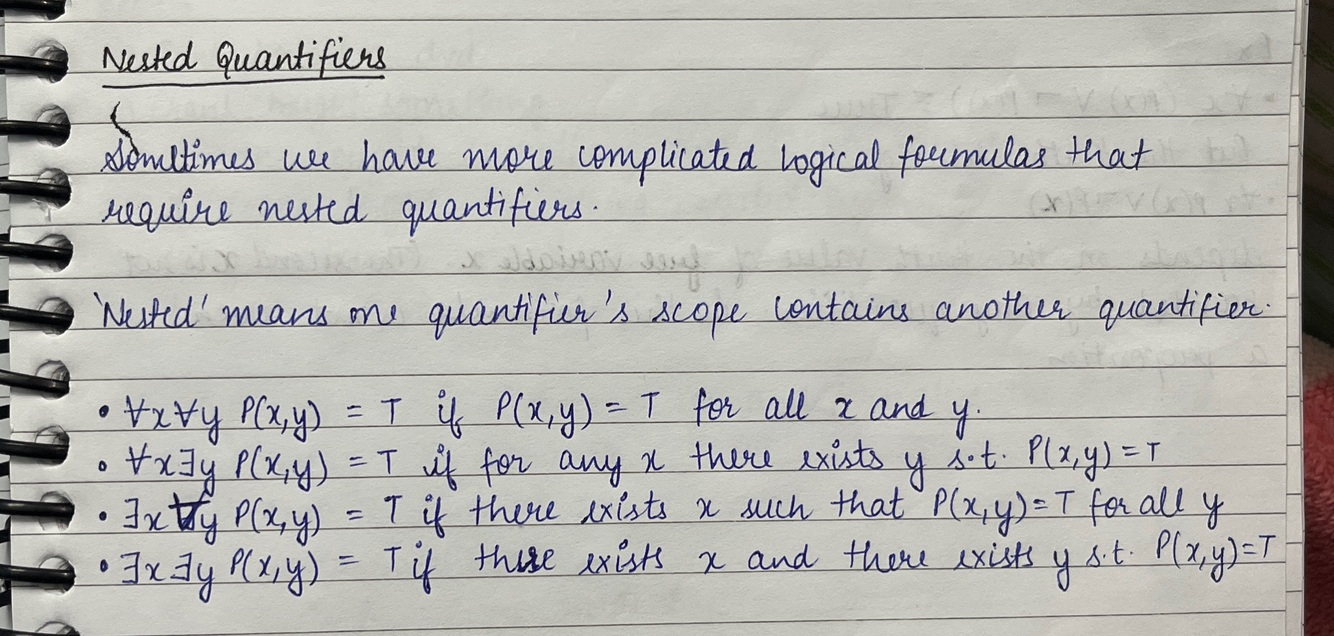 Nested Quantifiers
Sometimes we have more complicated logical formulas that
require nested quantifiers.
'Nested' means one quantifier's scope contains another quantifier.
• ∀x∀y P(x,y) = T if P(x,y) = T for all x and y.
• ∀x∃y P(x,y) = T if for any x there exists y s.t. P(x,y) = T
• ∃x∀y P(x,y) = T if there exists x such that P(x,y) = T for all y
• ∃x∃y P(x,y) = T if there exists x and there exists y s.t. P(x,y) = T